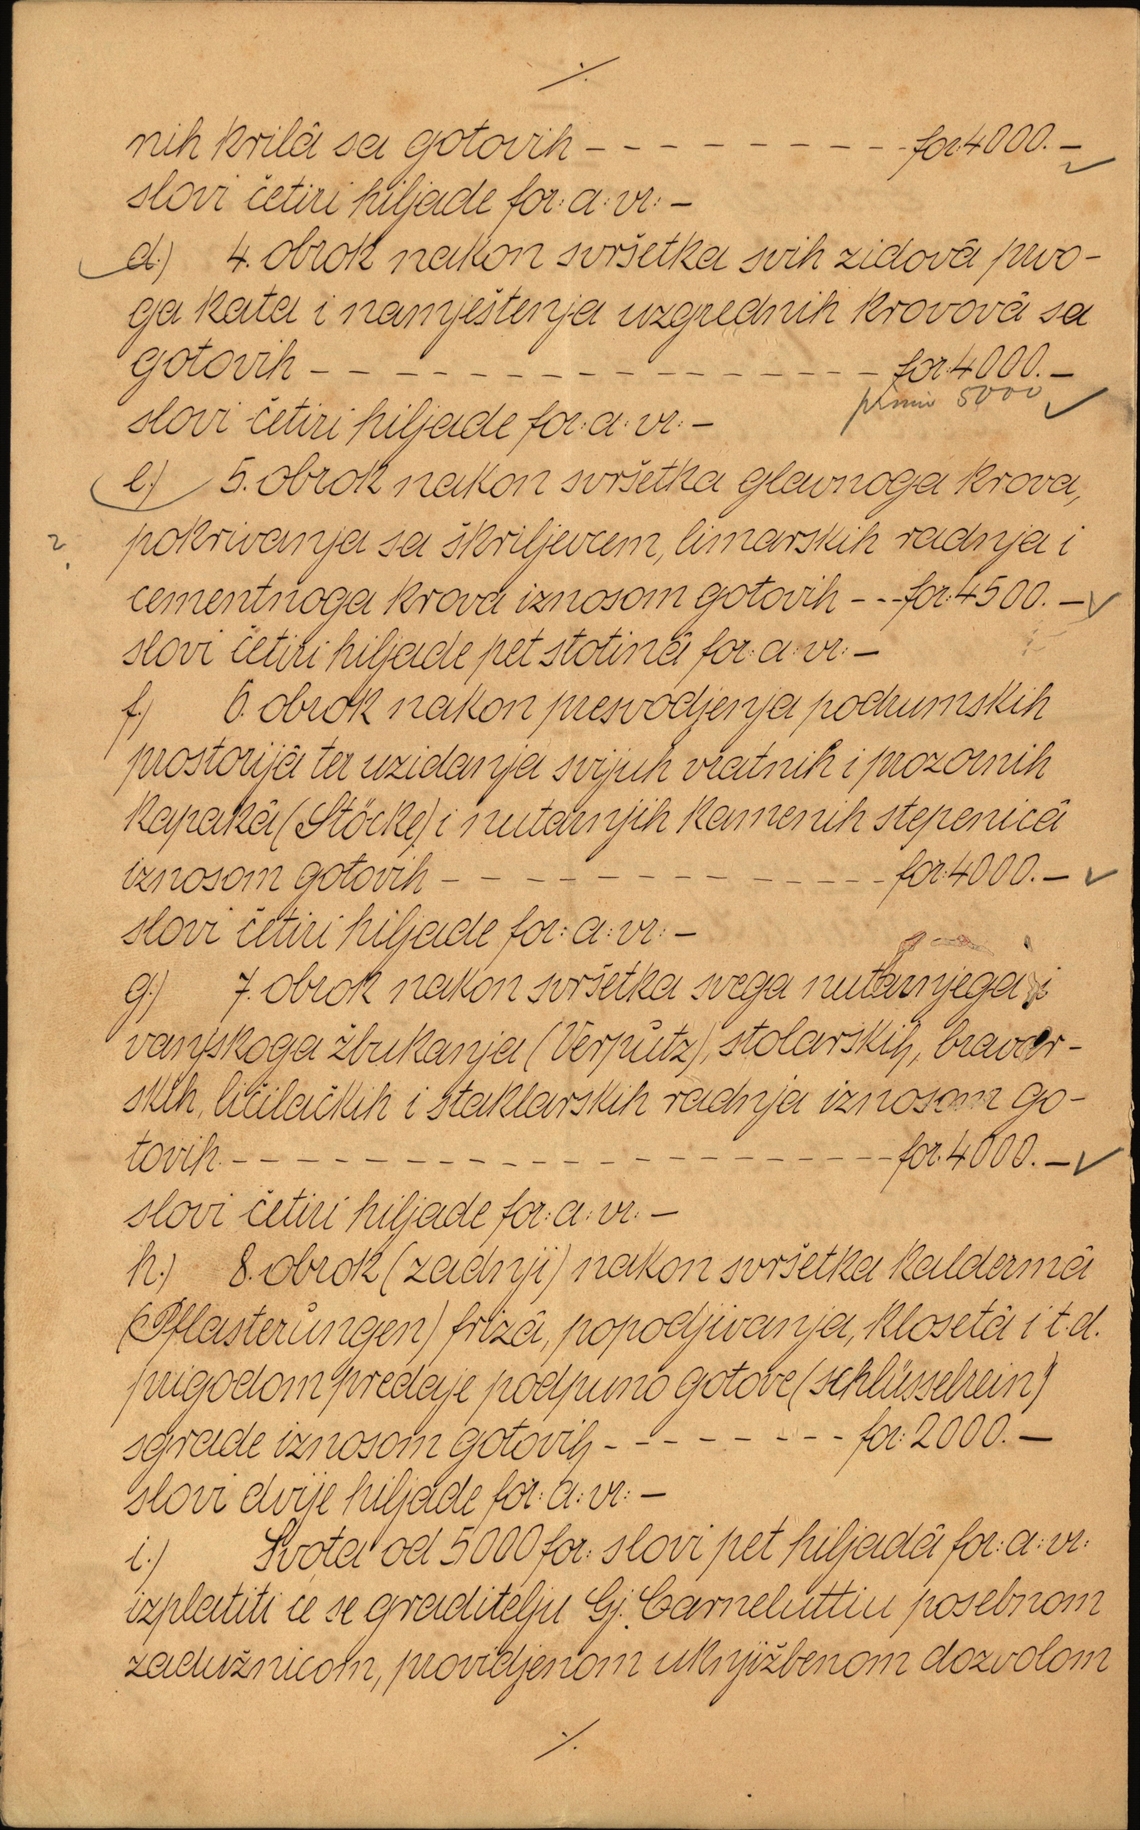 ·/.
nih krilâ sa gotovih – – – – – – – – – – for: 4000. –
slovi četiri hiljade for: a: vr: –
d.) 4. obrok nakon svršetka svih zidovâ prvo-
ga kata i namještenja uzgrednih krovovâ sa
gotovih – – – – – – – – – – – – – – – – – for: 4000. –
primio 5000
slovi četiri hiljade for: a: vr: –
e.) 5. obrok nakon svršetka glavnoga krova,
?
pokrivanja sa škriljevcem, limarskih radnja i
cementnoga krova iznosom gotovih – – – for: 4500. –
slovi četiri hiljade pet stotinâ for: a: vr: –
f.) 6. obrok nakon presvodjenja podrumskih
prostorijâ ter uzidanja svijuh vratnih i prozornih
kapakâ (Stöcke) i nutarnjih kamenih stepenicâ
iznosom gotovih – – – – – – – – – – – – – for: 4000. –
slovi četiri hiljade for: a: vr: –
g.) 7. obrok nakon svršetka svega nutarnjega i
vanjskoga žbukanja (Verputz), stolarskih, bravar-
skih, ličilačkih i staklarskih radnja iznosom go-
tovih – – – – – – – – – – – – – – – – – – – – for: 4000. –
slovi četiri hiljade for: a: vr: –
h.) 8. obrok (zadnji) nakon svršetka kaldermâ
(Pflasterungen) frizâ, popodjivanja, klosetâ i t.d.
prigodom predaje podpuno gotove (schlüsselrein)
sgrade iznosom gotovih – – – – – – – – for: 2000. –
slovi dvije hiljade for: a: vr: –
i.) Svota od 5000 for: slovi pet hiljadâ for: a: vr:
izplatiti će se graditelju Gj. Carneluttiu posebnom
zadužnicom, providjenom uknjižbenom dozvolom
·/.